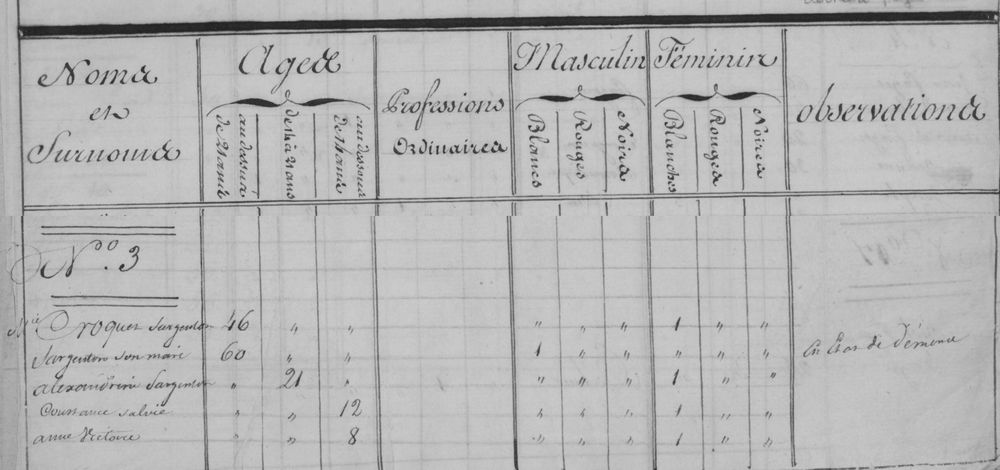 Noms et Surnoms
Ages
au dessus de 21 ans
de 14 à 21 ans
au dessous de 14 ans
Professions Ordinaires
Masculin
Blancs
Rouges
Noirs
Féminin
Blanches
Rouges
Noires
observations
N.º 3
Croquet Sargenton 46 " " " " " 1 " "
Sargenton son mari 60 " " 1 " " " " " en état de
alexandrine Sargenton " 21 " " " " 1 " "
Constance Salvie " " 12 " " " 1 " "
anne Victoire " " 8 " " " 1 " "